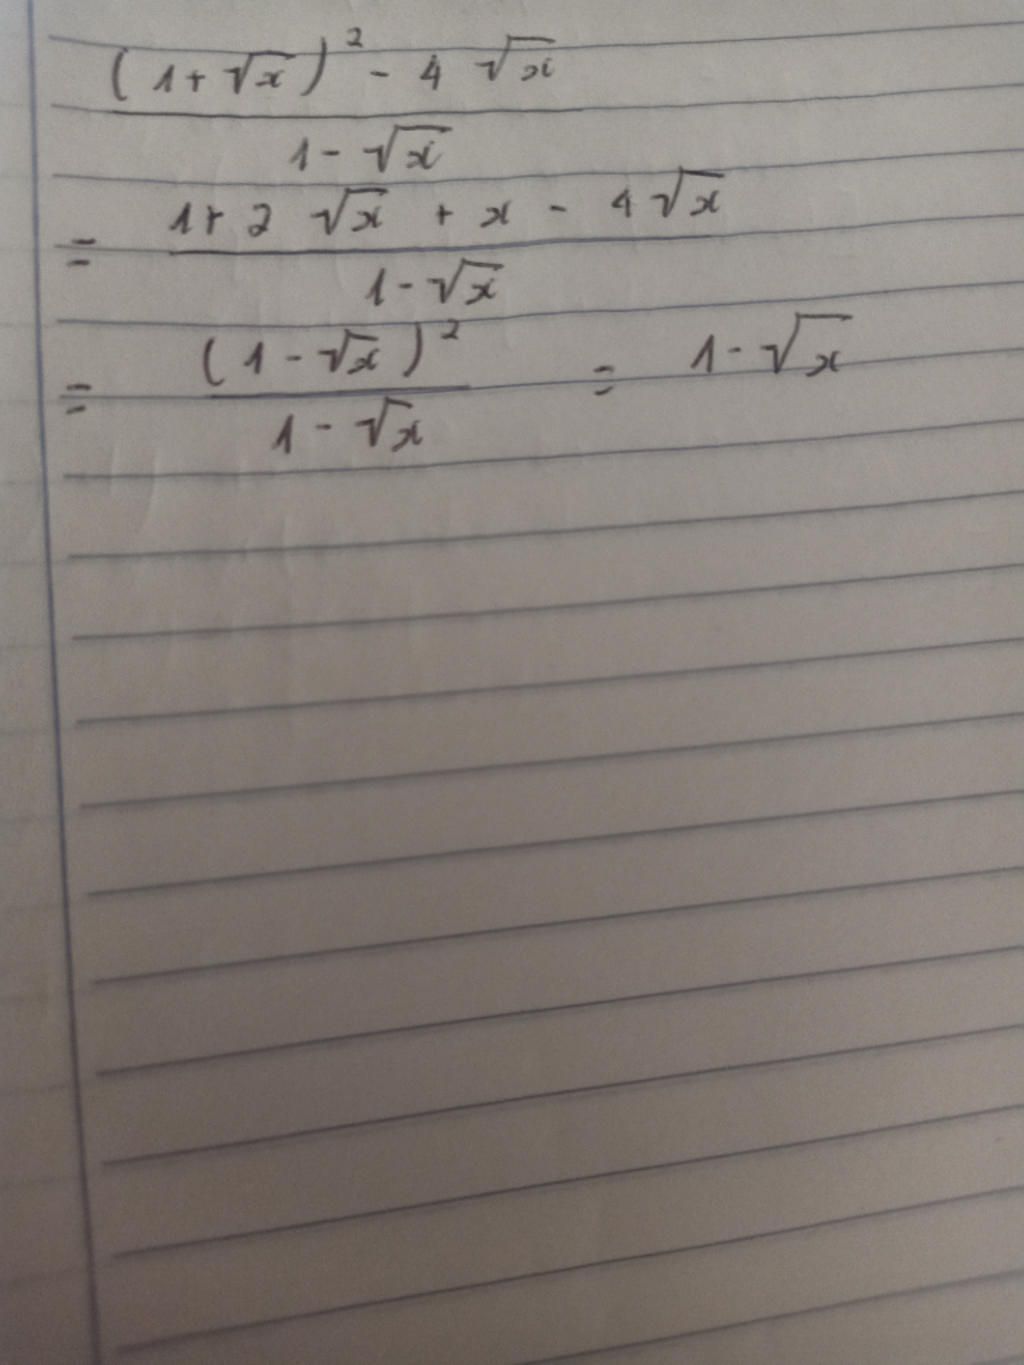 (1+√x)² - 4√x
1-√x
= 1+2√x + x - 4√x
1-√x
= (1-√x)² = 1-√x
1-√x